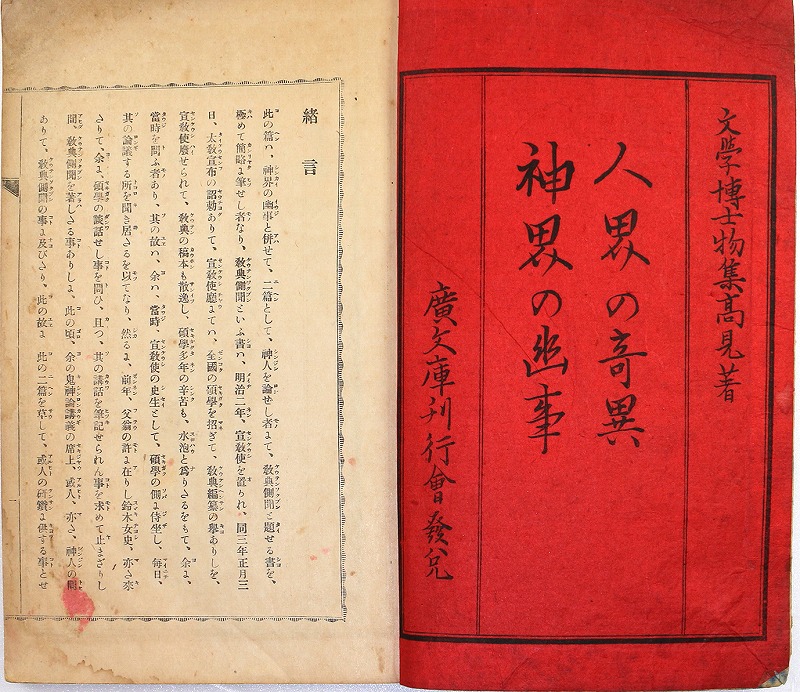 文學博士物集高見著
人界の奇異
神界の幽事
廣文庫刊行會發兌
緒言
此の篇ハ、神界の幽事と併せて、二篇として、神人を論せし者よて、敎典側聞と題せる書を、
極めて簡略よ筆せし者なり、敎典側聞といふ書ハ、明治二年、宣敎使を置られ、同三年正月三
日、大敎宣布の詔勅ありて、宣敎使廳よてハ、全國の碩學を招ぎて、敎典編纂の擧ありしを、
宣敎使廢せられて、敎典の稿本も散逸し、碩學多年の辛苦も、水泡と爲りさるをもて、余よ、
當時を問ふ者あり、其の故ハ、余ハ、當時、宣敎使の史生として、碩學の側よ侍坐し、每日、
其の論議する所を聞き居さるを以てなり、然るよ、前年、父翁の許よ在りし鈴木女史、亦さ來
さりて、余よ、碩學の談話せし事を問ひ、且つ、其の講話を筆記せられん事を求めて止まざりし
間、敎典側聞を著しさる事ありしよ、此の頃、余の鬼神論講義の席上、或人、亦さ、神人の關
ありて、敎典側聞の事よ及びさり、此の故よ、此の二篇を草して、或人の硏鑽よ供する事とせ